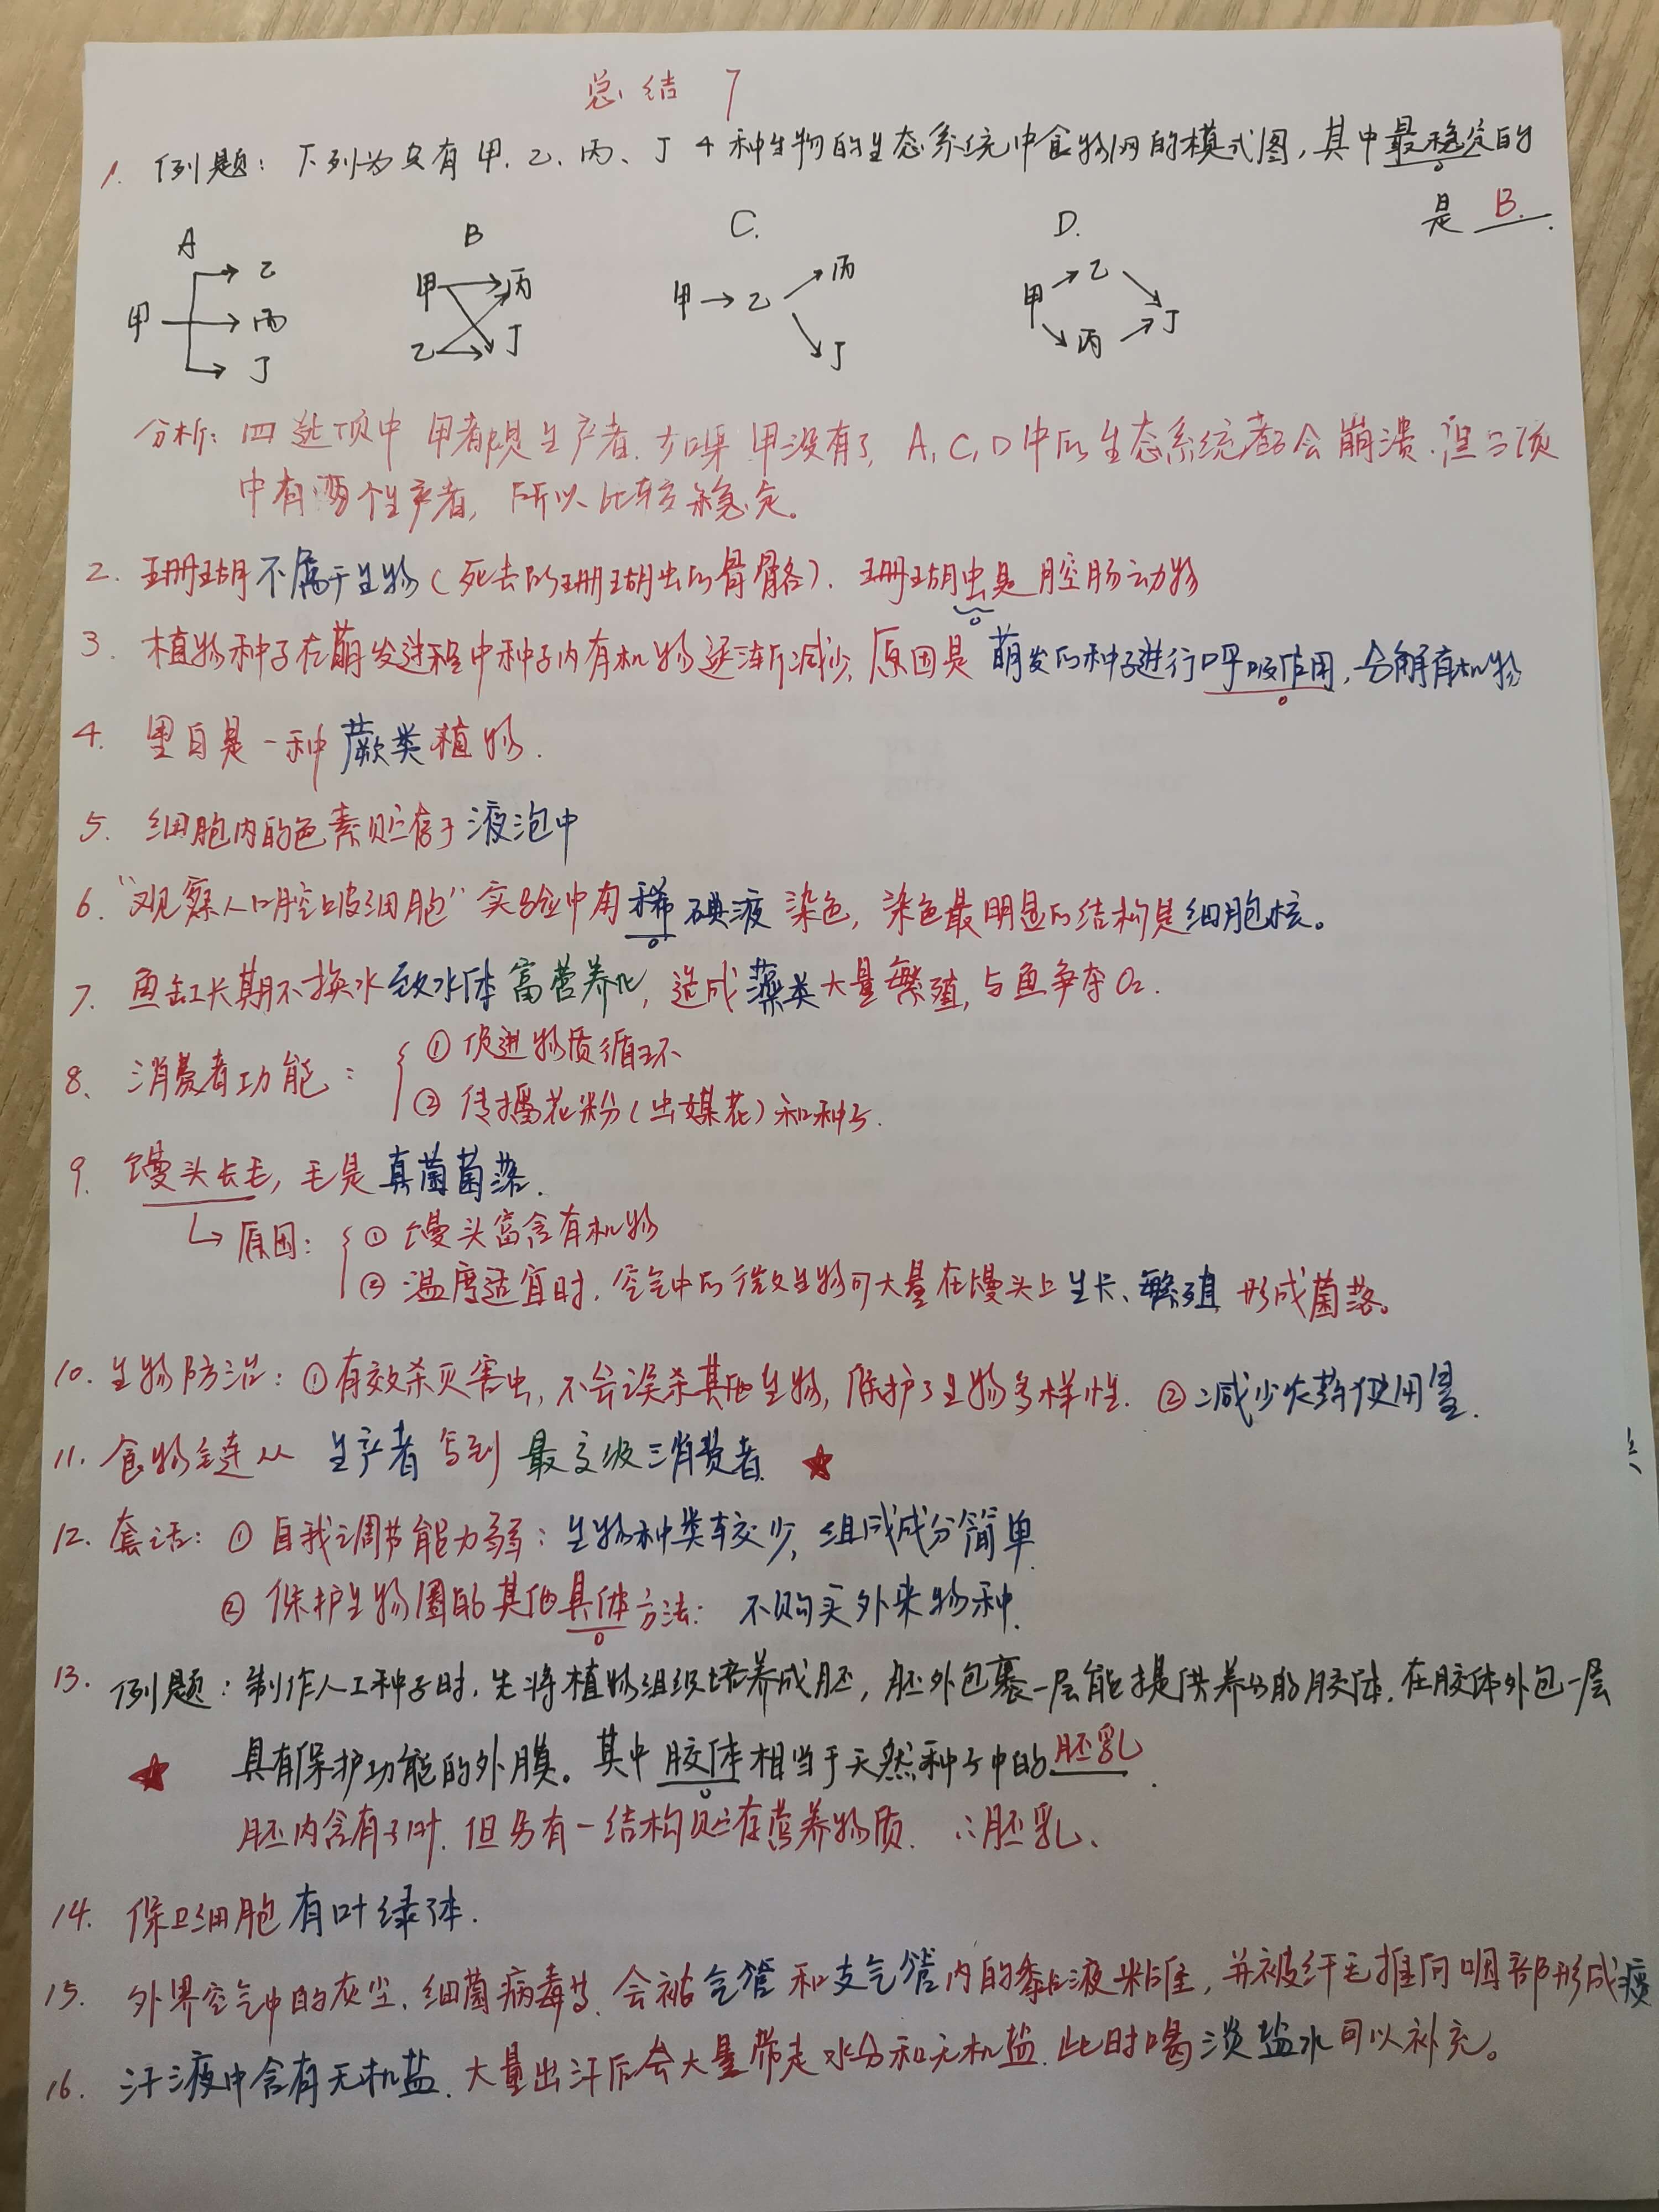 总结 7
1. 例题：下列为只有甲、乙、丙、丁4种生物的生态系统中食物网的模式图，其中最稳定的
是 B.
A B C. D.
甲→乙 甲→丙 甲→乙→丙 甲→乙→丁
甲→丙 甲→丁 乙→丁 甲→丙→丁
甲→丁 乙→丙
乙→丁
分析：四选项中甲都是生产者. 如果甲没有了, A, C, D中的生态系统都会崩溃. 但B项
中有两个生产者, 所以比较稳定。
2. 珊瑚不属于生物(死去的珊瑚虫的骨骼). 珊瑚虫是腔肠动物
3. 植物种子在萌发过程中种子内有机物逐渐减少, 原因是萌发的种子进行呼吸作用, 分解有机物
4. 里白是一种蕨类植物.
5. 细胞内的色素贮存于液泡中
6. “观察人口腔上皮细胞”实验中用稀碘液染色, 染色最明显的结构是细胞核。
7. 鱼缸长期不换水致水体富营养化, 造成藻类大量繁殖, 与鱼争夺O₂.
8、消费者功能：{ ① 促进物质循环
② 传播花粉(虫媒花)和种子.
9. 馒头长毛, 毛是真菌菌落.
↳原因：{ ① 馒头富含有机物
② 温度适宜时, 空气中的微生物可大量在馒头上生长、繁殖 形成菌落。
10. 生物防治：①有效杀灭害虫, 不会误杀其他生物, 保护了生物多样性. ②减少农药使用量.
11. 食物链从 生产者 写到 最高级消费者. ★
12. 套话：① 自我调节能力弱：生物种类较少, 组成成分简单.
② 保护生物圈的其他具体方法：不购买外来物种.
13. 例题：制作人工种子时, 先将植物组织培养成胚, 胚外包裹一层能提供养分的胶体, 在胶体外包一层
★ 具有保护功能的外膜。其中胶体相当于天然种子中的胚乳.
胚内含有子叶, 但另有一结构贮存营养物质. ∴胚乳、
14. 保卫细胞有叶绿体.
15. 外界空气中的灰尘、细菌病毒等, 会被气管和支气管内的黏液粘住, 并被纤毛推向咽部形成痰
16. 汗液中含有无机盐. 大量出汗后会大量带走水分和无机盐. 此时喝淡盐水可以补充。